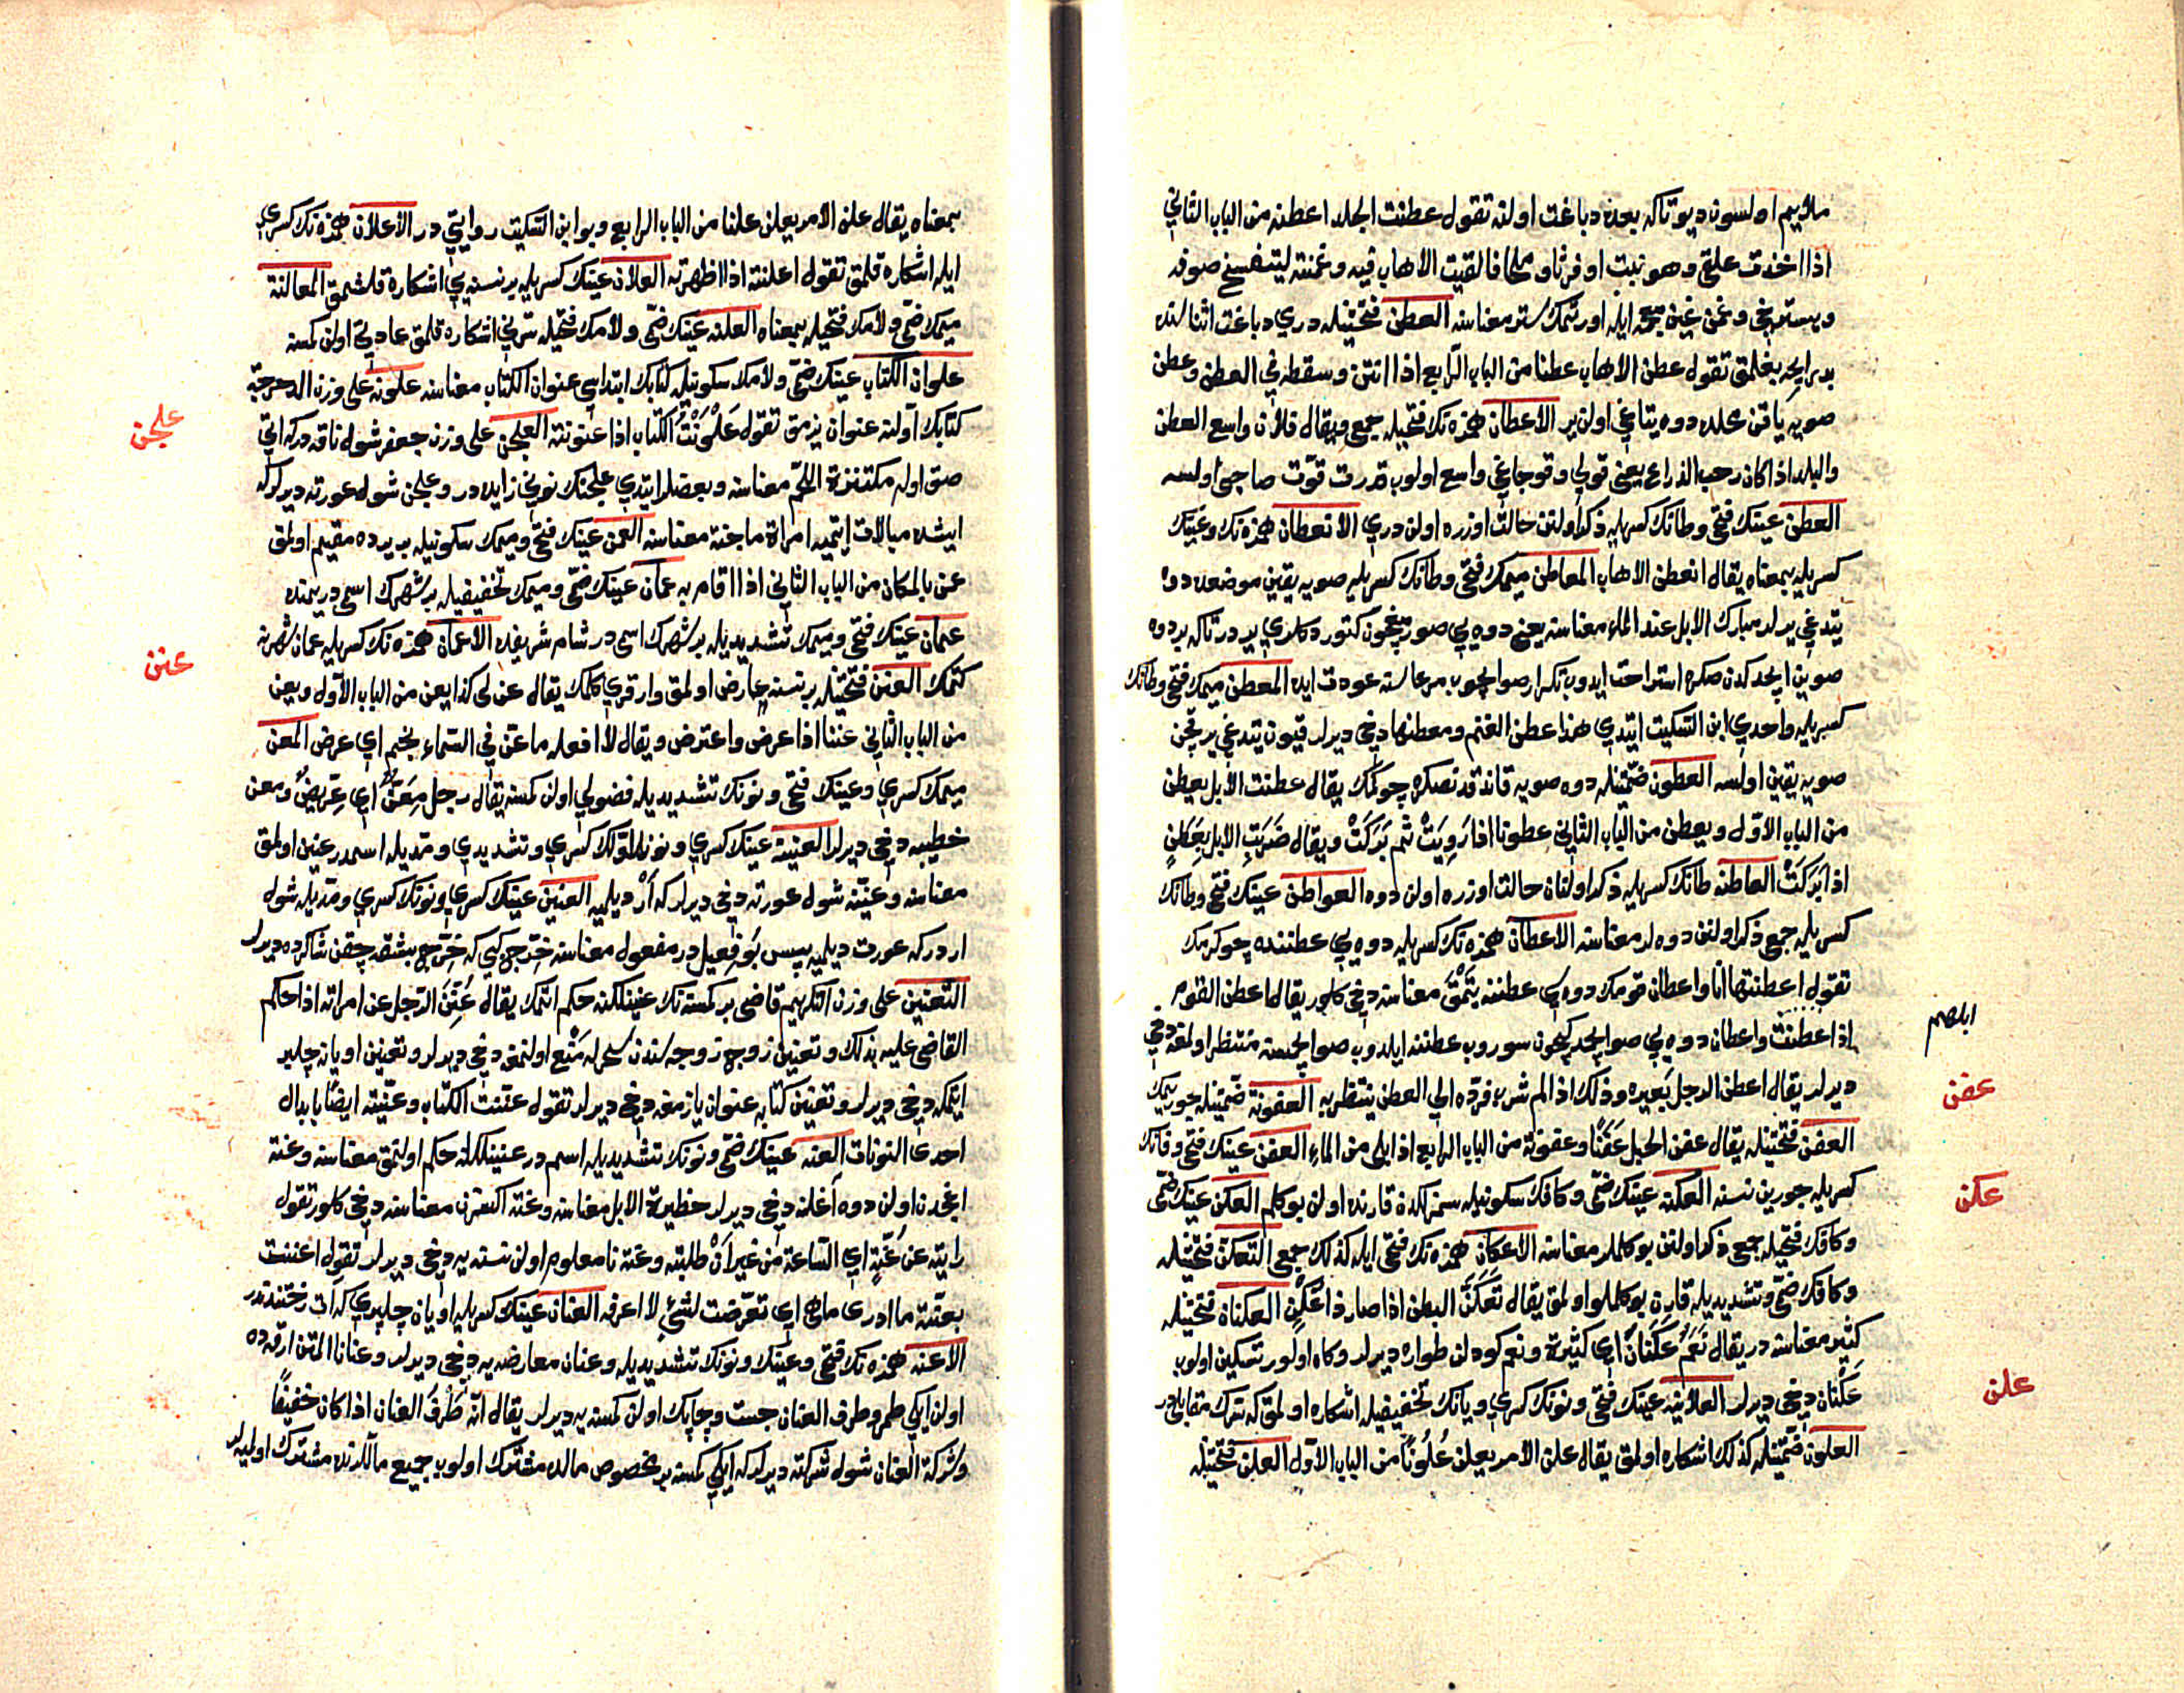 ملايم اولسون ديو تا كه بعده دباغت اولنه تقول عطنت الجلد اعطنه من الباب الثاني
اذا اخذت علقى وهو نبت او فرثا و ملحا فالقيت الاهاب فيه وغمنته ليتفسخ صوفه
ويسترخي وغمن غين معجمه ايله اورتمك ستر معناسنه العطن فتحتيله دري دباغت اثناسنده
بد رايحه بغلمق تقول عطن الاهاب عطنا من الباب الرابع اذا انتن وسقط في العطن وعطن
صويه ياقن محلده دوه يتاغي اولن ير الاعطان همزه نك فتحيله جمع ويقال فلان واسع العطن
والبلد اذا كان رحب الذراع يعني قولي و قوجاغي واسع اولوب قدرت قوت صاحبي اولسه
العطن عينك فتحي وطانك كسريله ذكر اولنن حالت اوزره اولن دري الانعطان همزه نك وعينك
كسريله بمعناه يقال انعطن الاهاب المعاطن ميمك فتحي وطانك كسريله صويه يقين موضعده دوه
يتدغي يرلر مبارك الابل عند الماء معناسنه يعني دوه يي صو ايچون كتوردكلري يردر تا كه بر دوه
صوين ايچدكدن صكره استراحت ايدوب تكرار صو ايچوب مرعاسنه عودت ايده المعطن ميمك فتحي وطانك
كسريله واحدي ابن السكيت ايتدي هذا عطن الغنم ومعطنها دخي ديرلر قيون يتدغي ير قچن
صويه يقين اولسه العطون ضمتيله دوه صويه قاندقدنصكره چوكمك يقال عطنت الابل يعطن
من الباب الاول ويعطن من الباب الثاني عطونا اذا رويت ثم بركت ويقال ضربت الابل بعطن
اذا بركت العاطنه طانك كسريله ذكر اولنان حالت اوزره اولن دوه العواطن عينك فتحي وطانك
كسريله جمع ذكر اولنن دوه لر معناسنه الاعطان همزه نك كسريله دوه يي عطننده چوكرمك
تقول اعطنتها انا واعطان قومك دوه سي عطننه يتمق معناسنه دخي كلور يقال اعطن القوم
اذا عطنت واعطان دوه يي صو ايچديكيچون سوروب عطننه ايلدوب صو ايچمسنه منتظر اولمغه دخي
ديرلر يقال اعطن الرجل بعيره وذلك اذا لم يشرب فرده الي العطن ينتظر به العفونة ضمتيله چوريمك
العفن فتحتيله يقال عفن الحبل عفنا وعفونة من الباب الرابع اذا بلي من الماء العفن عينك فتحي وفانك
كسريله چورين نسنه العكنه عينك ضمي وكافك سكونيله سمزلكدن قارنده اولن بوكلم العكن عينك ضمي
وكافك فتحيله جمع ذكر اولنن بوكلملر معناسنه الاعكان همزه نك فتحي ايله كذلك جمع التعكن فتحتيله
وكافك ضمي وتشديديله قارن بوكلملو اولمق يقال تعكن البطن اذا صار ذا عكن العكنان فتحتيله
كثير معناسنه در يقال نعم عكنان اي كثيرة ونعم كودلن طواره ديرلر وكاه اولور تسكين اولوب
عكنان دخي ديرلر العلانيه عينك فتحي ونونك كسري ويانك تخفيفيله اشكاره اولمق كه سرك مقابليدر
العلون ضمتيله كذلك اشكاره اولمق يقال علن الامر يعلن علونا من الباب الاول العلن فتحتيله
ابلصم
عفن
عكن
علن
بمعناه يقال علن الامر يعلن علنا من الباب الرابع وبو ابن السكيت روايتي در الاعلان همزه نك كسري
ايله اشكاره قلمق تقول اعلنته اذا اظهرته العلان عينك كسريله بر نسنه يي اشكاره قلشمق المعالنة
ميمك ضمي ولامك فتحيله بمعناه العلنه عينك ضمي ولامك فتحيله سرني اشكاره قلمق عادتي اولن كمسنه
علوان الكتاب عينك ضمي ولامك سكونيله كتابك ابتداسي عنوان الكتاب معناسنه علونه علي وزن الدحرجة
كتابك اولنه عنوان يزمق تقول علونت الكتاب اذا عنونته العلجن علي وزن جعفر شول ناقه دركه اتي
صق اوله مكتنزة اللحم معناسنه وبعضلر ايتدي علجنك نوني زايده در وعلجن شول عورته ديرلركه
ايشده مبالات ايتميه امراة ماجنة معناسنه العمن عينك فتحي وميمك سكونيله بر يرده مقيم اولمق
عمن بالمكان من الباب الثاني اذا اقام به عمان عينك ضمي وميمك تخفيفيله بر شهرك اسمي در يمنده
عمان عينك فتحي وميمك تشديديله بر شهرك اسمي در شام شريفده الاعمان همزه نك كسريله عمان شهرنه
كتمك العنن فتحتيله بر نسنه عارض اولمق وارقري كلمك يقال عن لي كذا يعن من الباب الاول ويعن
من الباب الثاني عننا اذا عرض واعترض ويقال لا افعله ما عن في السماء نجم اي عرض المعن
ميمك كسري وعينك فتحي ونونك تشديديله فضولي اولن كمسنه يقال رجل معن اي عريض ومعن
خطيبه دخي ديرلر العنينة عينك كسري ونون اولك كسري وتشديدي ومديله اسمدر عنين اولمق
معناسنه وعنينه شول عورته دخي ديرلر كه ار ديلميه العنين عينك كسري ونونك كسري ومديله شول
اردركه عورت ديلميه پس بو فعيل در مفعول معناسنه خريج كبي كه خريج بشقه چقن شاكرده ديرلر
التعنين علي وزن التكريم قاضي بر كمسنه نك عنينلكنه حكم اتمك يقال عنن الرجل عن امراته اذا حكم
القاضي عليه بذلك وتعنين زوج زوجه سندن سحرله منع اولنمغه دخي ديرلر وتعنين اويان چلبر
ايتمكه دخي ديرلر وتعنين كتابه عنوان يازمغه دخي ديرلر تقول عننت الكتاب وعنيته ايضا بابدال
احدي النونات العنه عينك ضمي ونونك تشديديله اسم در عنينلكله حكم اولنمق معناسنه وعنة
اغجدن اولن دوه اغلنه دخي ديرلر حظيرة الابل معناسنه وعنه اكسزن معناسنه دخي كلور تقول
رايته عن عنة اي الساعة من غير ان طلبته وعنه نا معلوم اولن نسنه يه دخي ديرلر تقول اعننت
بعنة ما ادري ما هي اي تعرضت لشئ لا اعرفه العنان عينك كسريله اويان چلبري كه ات رختندندر
الاعنه همزه نك فتحي وعينك ونونك تشديديله وعنان معارضه يه دخي ديرلر وعنانا المتن ارقه ده
اولن ايكي طمر وطرف العنان جست و چاپك اولن كمسنه يه ديرلر يقال انه طرف العنان اذا كان خفيفا
وشركة العنان شول شركته ديرلر كه ايكي كمسنه بر مخصوص مالده مشترك اولوب جميع ماللرنده مشترك اوليه لر
علجن
عنن